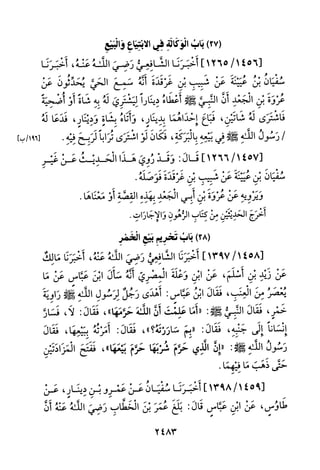 (٢٧) بَابُ الْوَكَالَةِ فِي الابْتِيَاعِ وَالْبَيْعِ
[١٢٦٥/١٤٥٦] أَخْبَرَنَا الشَّافِعِيُّ رَضِيَ اللَّهُ عَنْهُ، أَخْبَرَنَا
سُفْيَانُ بْنُ عُيَيْنَةَ عَنْ شَبِيبِ بْنِ غَرْقَدَةَ أَنَّهُ سَمِعَ الحَيَّ يُحَدِّثُونَ عَنْ
عُرْوَةَ بْنِ أَبِي الْجَعْدِ أَنَّ النَّبِيَّ ﷺ أَعْطَاهُ دِينَاراً لِيَشْتَرِيَ لَهُ بِهِ شَاةً أَوْ أُضْحِيَةً
فَاشْتَرَى لَهُ شَاتَيْنِ، فَبَاعَ إِحْدَاهُمَا بِدِينَارٍ، وَأَتَاهُ بِشَاةٍ وَدِينَارٍ، فَدَعَا لَهُ
/ رَسُولُ اللَّهِ ﷺ فِي بَيْعِهِ بِالْبَرَكَةِ، فَكَانَ لَوِ اشْتَرَى تُرَاباً لَرَبِحَ فِيْهِ. [١٩٦/ب]
[١٢٦٦/١٤٥٧] قَالَ: وَقَدْ رَوَى هَذَا الْحَدِيْثَ عَنْ غَيْرُ
سُفْيَانَ بْنِ عُيَيْنَةَ عَنْ شَبِيبِ بْنِ غَرْقَدَةَ فَوَصَلَهُ.
وَيَرْوِيْهِ عَنْ عُرْوَةَ بْنِ أَبِي الْجَعْدِ بِهَذِهِ الْقِصَّةِ أَوْ مَعْنَاهَا.
أَخْرَجَ الْحَدِيْثَيْنِ مِنْ كِتَابِ الرُّهُونِ وَالإِجَارَاتِ.
(٢٨) بَابُ تَحْرِيْمِ بَيْعِ الْخَمْرِ
[١٣٩٧/١٤٥٨] أَخْبَرَنَا الشَّافِعِيُّ رَضِيَ اللَّهُ عَنْهُ، أَخْبَرَنَا مَالِكٌ
عَنْ زَيْدِ بْنِ أَسْلَمَ، عَنِ ابْنِ وَعْلَةَ الْمِصْرِيِّ أَنَّهُ سَأَلَ ابْنَ عَبَّاسٍ عَنْ مَا
يُعْصَرُ مِنَ الْعِنَبِ، فَقَالَ ابْنُ عَبَّاسٍ: أَهْدَى رَجُلٌ لِرَسُولِ اللَّهِ ﷺ رَاوِيَةَ
خَمْرٍ، فَقَالَ النَّبِيُّ ﷺ: «أَمَا عَلِمْتَ أَنَّ اللَّهَ حَرَّمَهَا»، فَقَالَ: لَا، فَسَارَّ
إِنْسَاناً إِلَى جَنْبِهِ، فَقَالَ: «بِمَ سَارَرْتَهُ؟»، فَقَالَ: أَمَرْتُهُ بِبَيْعِهَا، فَقَالَ
رَسُولُ اللَّهِ ﷺ: «إِنَّ الَّذِي حَرَّمَ شُرْبَهَا حَرَّمَ بَيْعَهَا»، فَفَتَحَ الْمَزَادَتَيْنِ
حَتَّى ذَهَبَ مَا فِيْهِمَا.
[١٣٩٨/١٤٥٩] أَخْبَرَنَا سُفْيَانُ عَنْ عَمْرِو بْنِ دِينَارٍ، عَنْ
طَاوُسٍ، عَنِ ابْنِ عَبَّاسٍ قَالَ: بَلَغَ عُمَرَ بْنَ الْخَطَّابِ رَضِيَ اللَّهُ عَنْهُ أَنَّ
٢٤٨٣